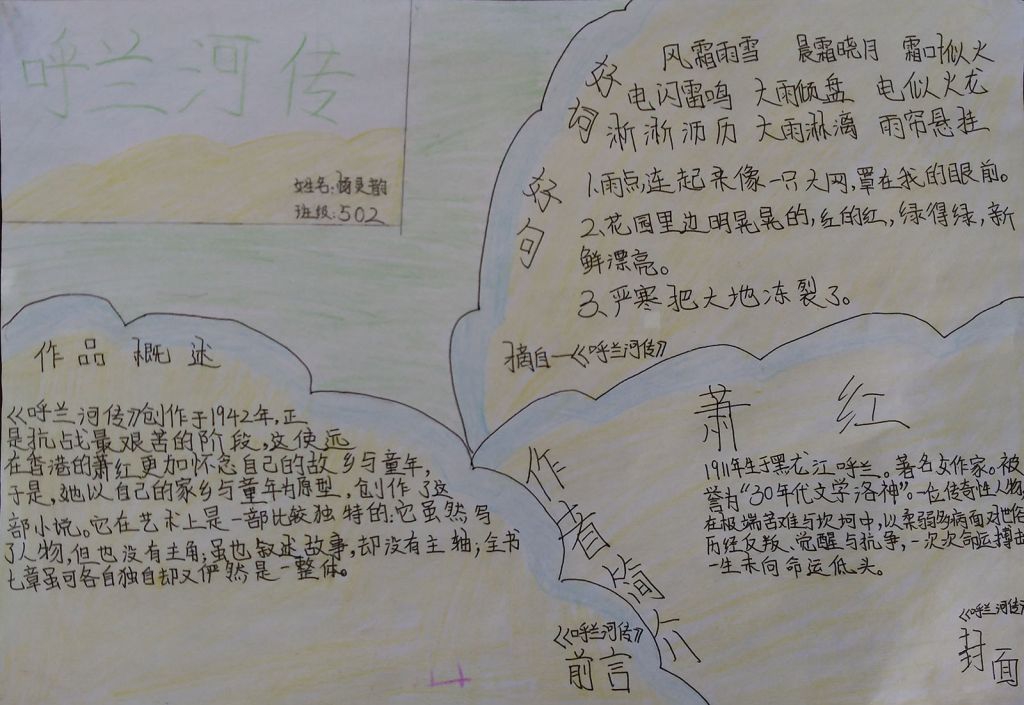 呼兰河传
姓名:
班级:502
好词
风霜雨雪 晨霜晓月 霜叶似火
电闪雷鸣 大雨倾盘 电似火龙
淅淅沥历 大雨淋漓 雨帘悬挂
好句
1.雨点连起来像一只大网,罩在我的眼前。
2、花园里边明晃晃的,红的红,绿得绿,新
鲜漂亮。
3、严寒把大地冻裂了。
摘自—《呼兰河传》
作品概述
《呼兰河传》创作于1942年,正
是抗战最艰苦的阶段,这使远
在香港的萧红更加怀念自己的故乡与童年,
于是,她以自己的家乡与童年为原型,创作了这
部小说。它在艺术上是一部比较独特的:它虽然写
了人物,但也没有主角;虽也叙述故事,却没有主轴;全书
七章虽可各自独自却又俨然是一整体。
作者简介
萧红
1911年生于黑龙江呼兰。著名女作家。被
誉为“30年代文学洛神”。一位传奇性人物
在极端苦难与坎坷中,以柔弱多病面对世俗
历经反叛、觉醒与抗争,一次次命运搏击
一生未向命运低头。
《呼兰河传》
前言
《呼兰河传》
封面